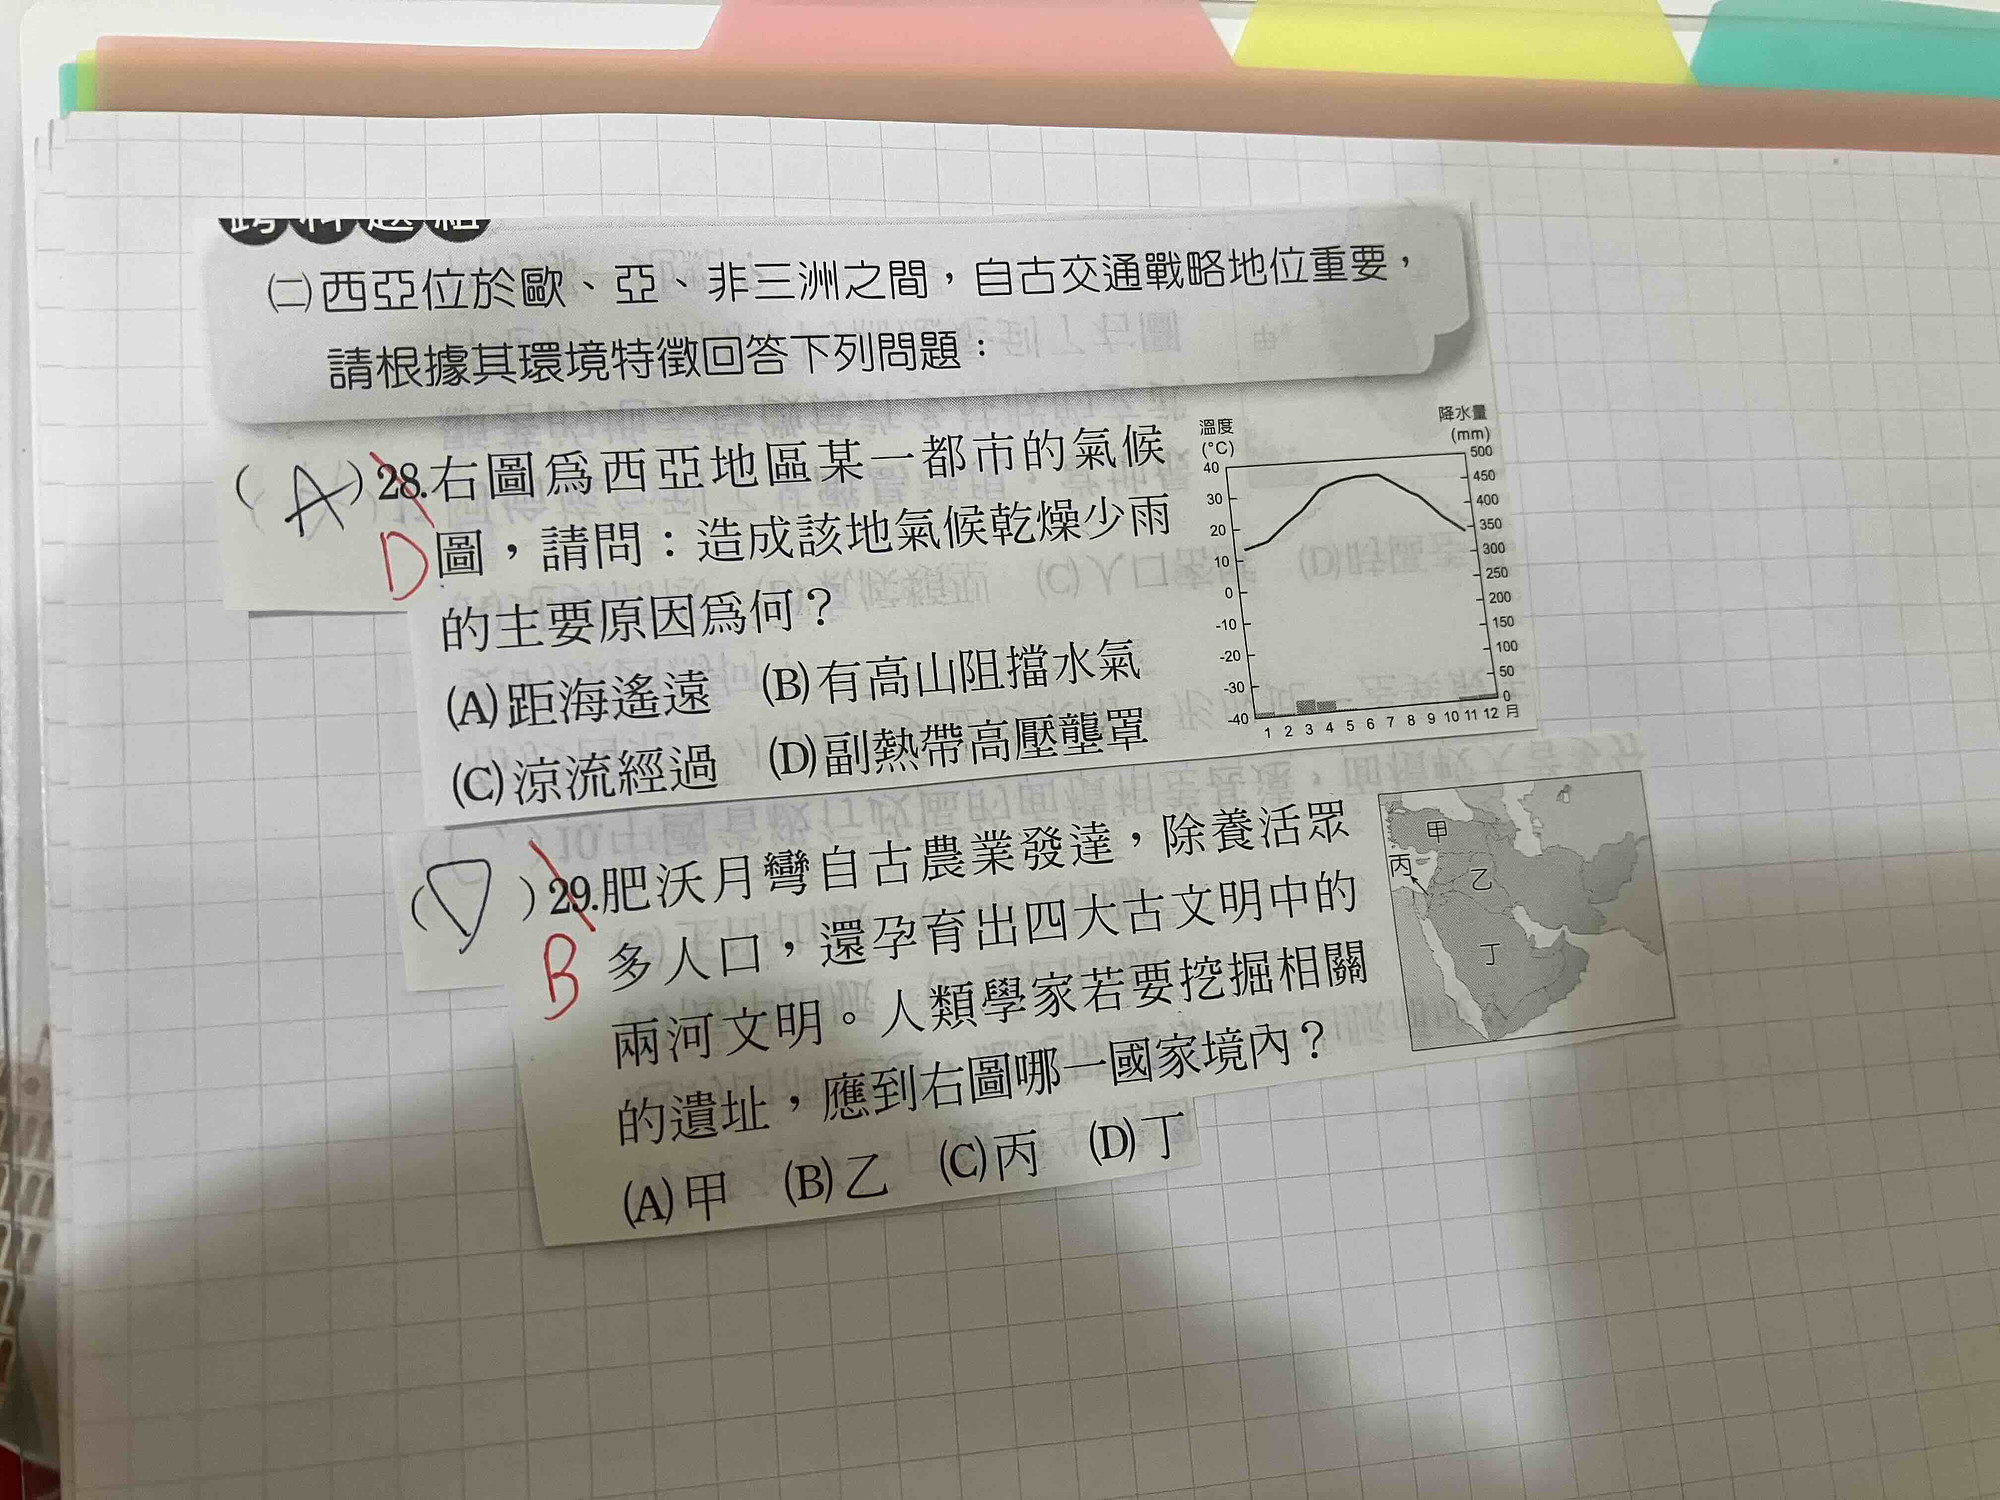 跨科題組
㈡西亞位於歐、亞、非三洲之間，自古交通戰略地位重要，
請根據其環境特徵回答下列問題：
( A )28.右圖為西亞地區某一都市的氣候
D
圖，請問：造成該地氣候乾燥少雨
的主要原因為何？
(A)距海遙遠 (B)有高山阻擋水氣
(C)涼流經過 (D)副熱帶高壓壟罩
溫度
(°C)
降水量
(mm)
40
30
20
10
0
-10
-20
-30
-40
500
450
400
350
300
250
200
150
100
50
0
1 2 3 4 5 6 7 8 9 10 11 12 月
( D )29.肥沃月彎自古農業發達，除養活眾
B
多人口，還孕育出四大古文明中的
兩河文明。人類學家若要挖掘相關
的遺址，應到右圖哪一國家境內？
(A)甲 (B)乙 (C)丙 (D)丁
甲
丙
乙
丁